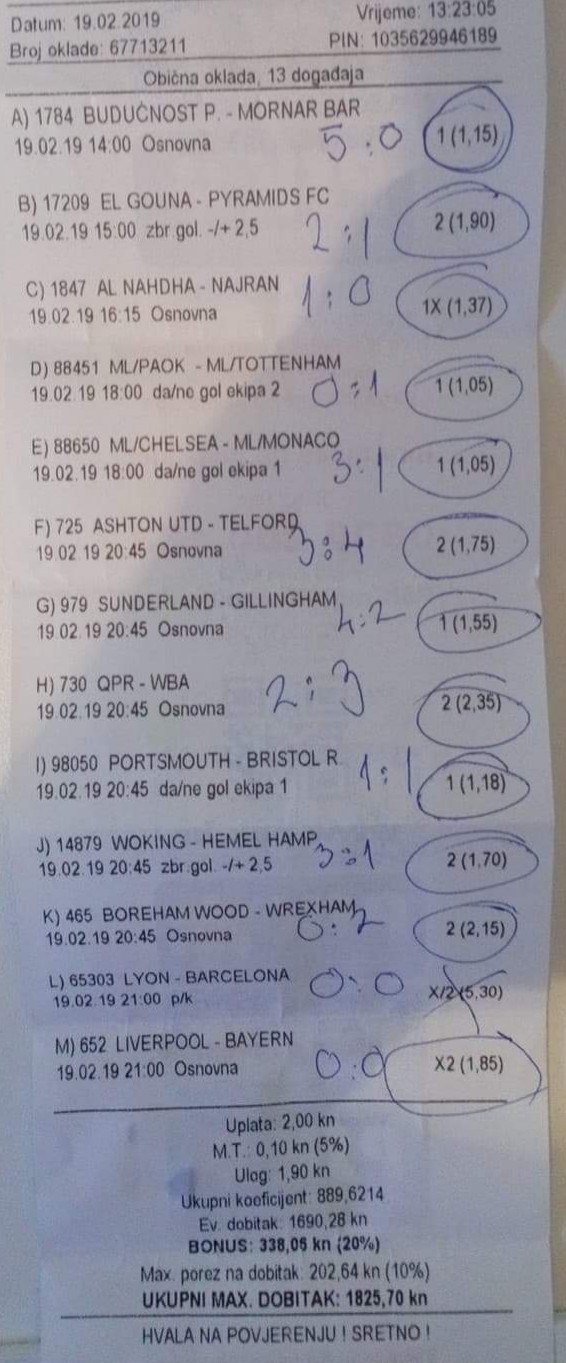 Datum: 19.02.2019 Vrijeme: 13:23:05
Broj oklade: 67713211 PIN: 1035629946189
Obična oklada, 13 događaja
A) 1784 BUDUĆNOST P. - MORNAR BAR
19.02.19 14:00 Osnovna 5:0 1 (1,15)
B) 17209 EL GOUNA - PYRAMIDS FC
19.02.19 15:00 zbr.gol. -/+ 2,5 2:1 2 (1,90)
C) 1847 AL NAHDHA - NAJRAN
19.02.19 16:15 Osnovna 1:0 1X (1,37)
D) 88451 ML/PAOK - ML/TOTTENHAM
19.02.19 18:00 da/ne gol ekipa 2 0:1 1 (1,05)
E) 88650 ML/CHELSEA - ML/MONACO
19.02.19 18:00 da/ne gol ekipa 1 3:1 1 (1,05)
F) 725 ASHTON UTD - TELFORD
19.02.19 20:45 Osnovna 3:4 2 (1,75)
G) 979 SUNDERLAND - GILLINGHAM
19.02.19 20:45 Osnovna 4:2 1 (1,55)
H) 730 QPR - WBA
19.02.19 20:45 Osnovna 2:3 2 (2,35)
I) 98050 PORTSMOUTH - BRISTOL R.
19.02.19 20:45 da/ne gol ekipa 1 1:1 1 (1,18)
J) 14879 WOKING - HEMEL HAMP.
19.02.19 20:45 zbr.gol. -/+ 2,5 3:1 2 (1,70)
K) 465 BOREHAM WOOD - WREXHAM
19.02.19 20:45 Osnovna 0:2 2 (2,15)
L) 65303 LYON - BARCELONA
19.02.19 21:00 p/k 0:0 X/2 (5,30)
M) 652 LIVERPOOL - BAYERN
19.02.19 21:00 Osnovna 0:0 X2 (1,85)
Uplata: 2,00 kn
M.T.: 0,10 kn (5%)
Ulog: 1,90 kn
Ukupni koeficijent: 889,6214
Ev. dobitak: 1690,28 kn
BONUS: 338,06 kn (20%)
Max. porez na dobitak: 202,64 kn (10%)
UKUPNI MAX. DOBITAK: 1825,70 kn
HVALA NA POVJERENJU ! SRETNO !